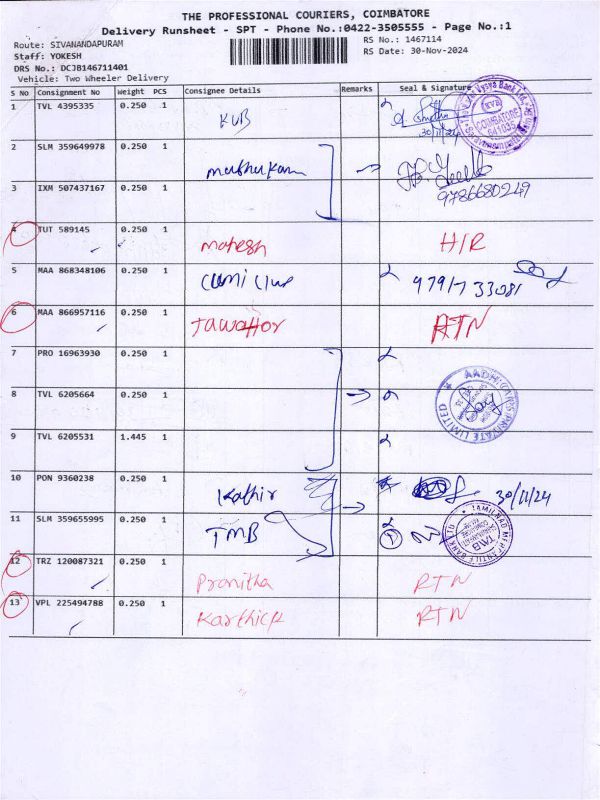 THE PROFESSIONAL COURIERS, COIMBATORE
Delivery Runsheet - SPT - Phone No.:0422-3505555 - Page No.:1
Route: SIVANANDAPURAM
RS No.: 1467114
Staff: YOKESH
RS Date: 30-Nov-2024
DRS No.: DCJB146711401
Vehicle: Two Wheeler Delivery
S No Consignment No Weight PCS Consignee Details Remarks Seal & Signature
1 TVL 4395335 0.250 1 KVB
30/11/24
COIMBATORE
641035
2 SLM 359649978 0.250 1
3 IXM 507437167 0.250 1 9786680249
4 TUT 589145 0.250 1 Mahesh H/R
5 MAA 868348106 0.250 1
6 MAA 866957116 0.250 1 RTN
7 PRO 16963930 0.250 1
8 TVL 6205664 0.250 1
PRIVATE LIMITED
9 TVL 6205531 1.445 1
10 PON 9360238 0.250 1 Kathir 30/11/24
11 SLM 359655995 0.250 1 TMB
TAMILNAD MERCANTILE BANK LTD
TMB
12 TRZ 120087321 0.250 1 Pranitha RTN
13 VPL 225494788 0.250 1 Karthick RTN